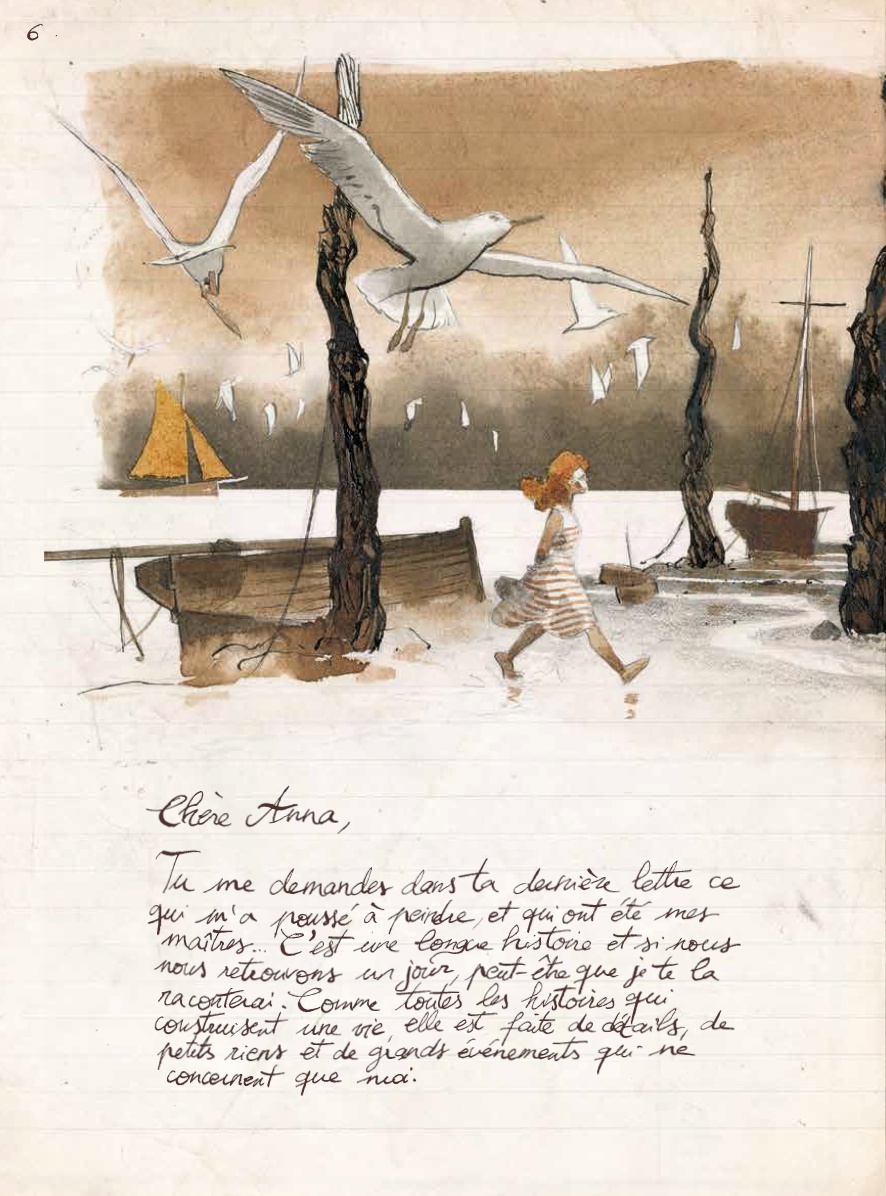 6.
Chère Anna,
Tu me demandes dans ta dernière lettre ce
qui m'a poussé à peindre, et qui ont été mes
maîtres... C'est une longue histoire et si nous
nous retrouvons un jour, peut-être que je te la
raconterai. Comme toutes les histoires qui
construisent une vie, elle est faite de détails, de
petits riens et de grands événements qui ne
concernent que moi.